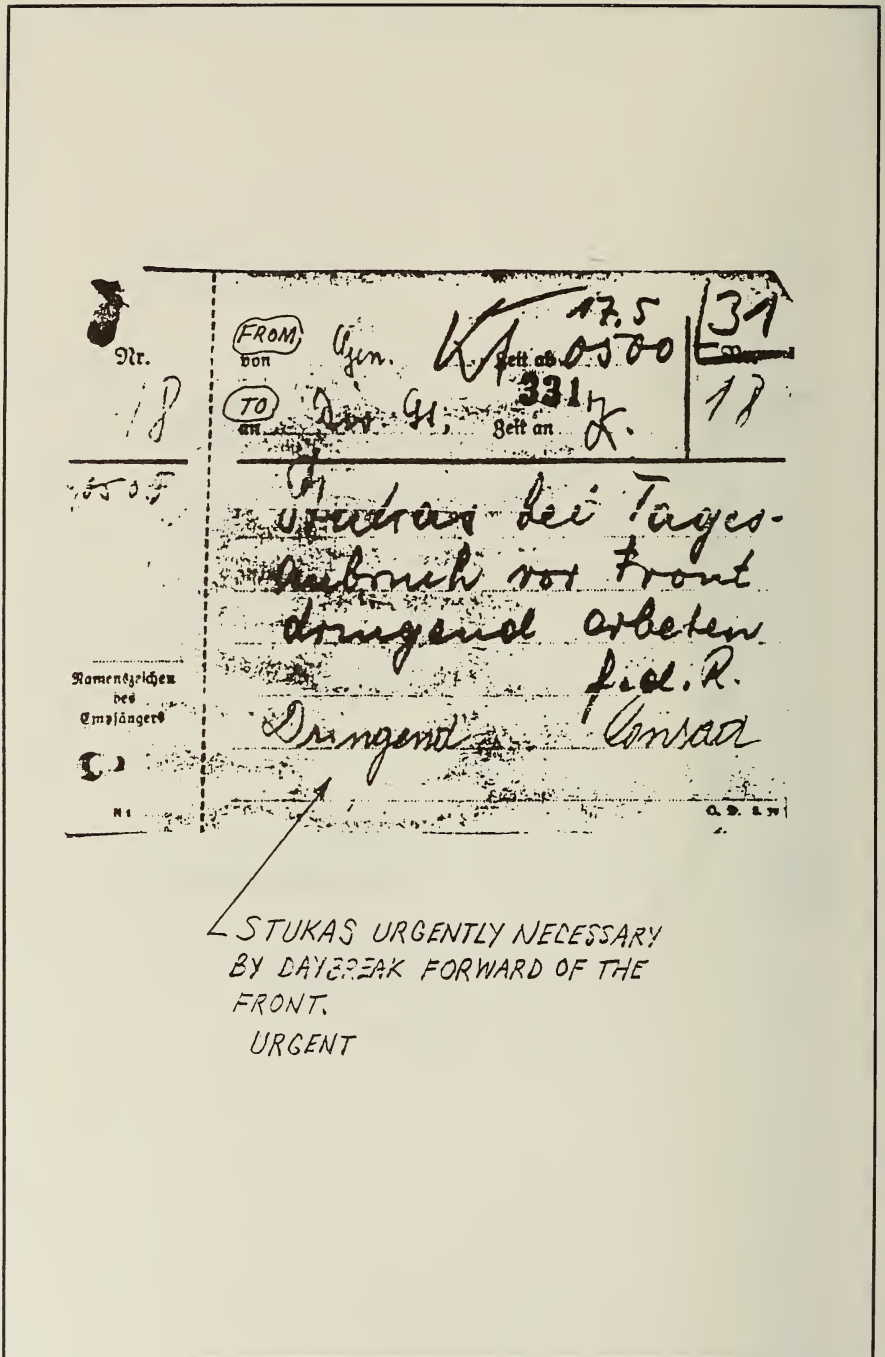 FROM
von Gen.
17.5
Zeit ab 0500
31
TO
an Div Gs,
331
Zeit an
18
Nr.
18
Stukas bei Tages-
anbruch vor Front
dringend erbeten
Dringend Conrad
Namenszeichen
des
Empfängers
STUKAS URGENTLY NECESSARY
BY DAYBREAK FORWARD OF THE
FRONT.
URGENT